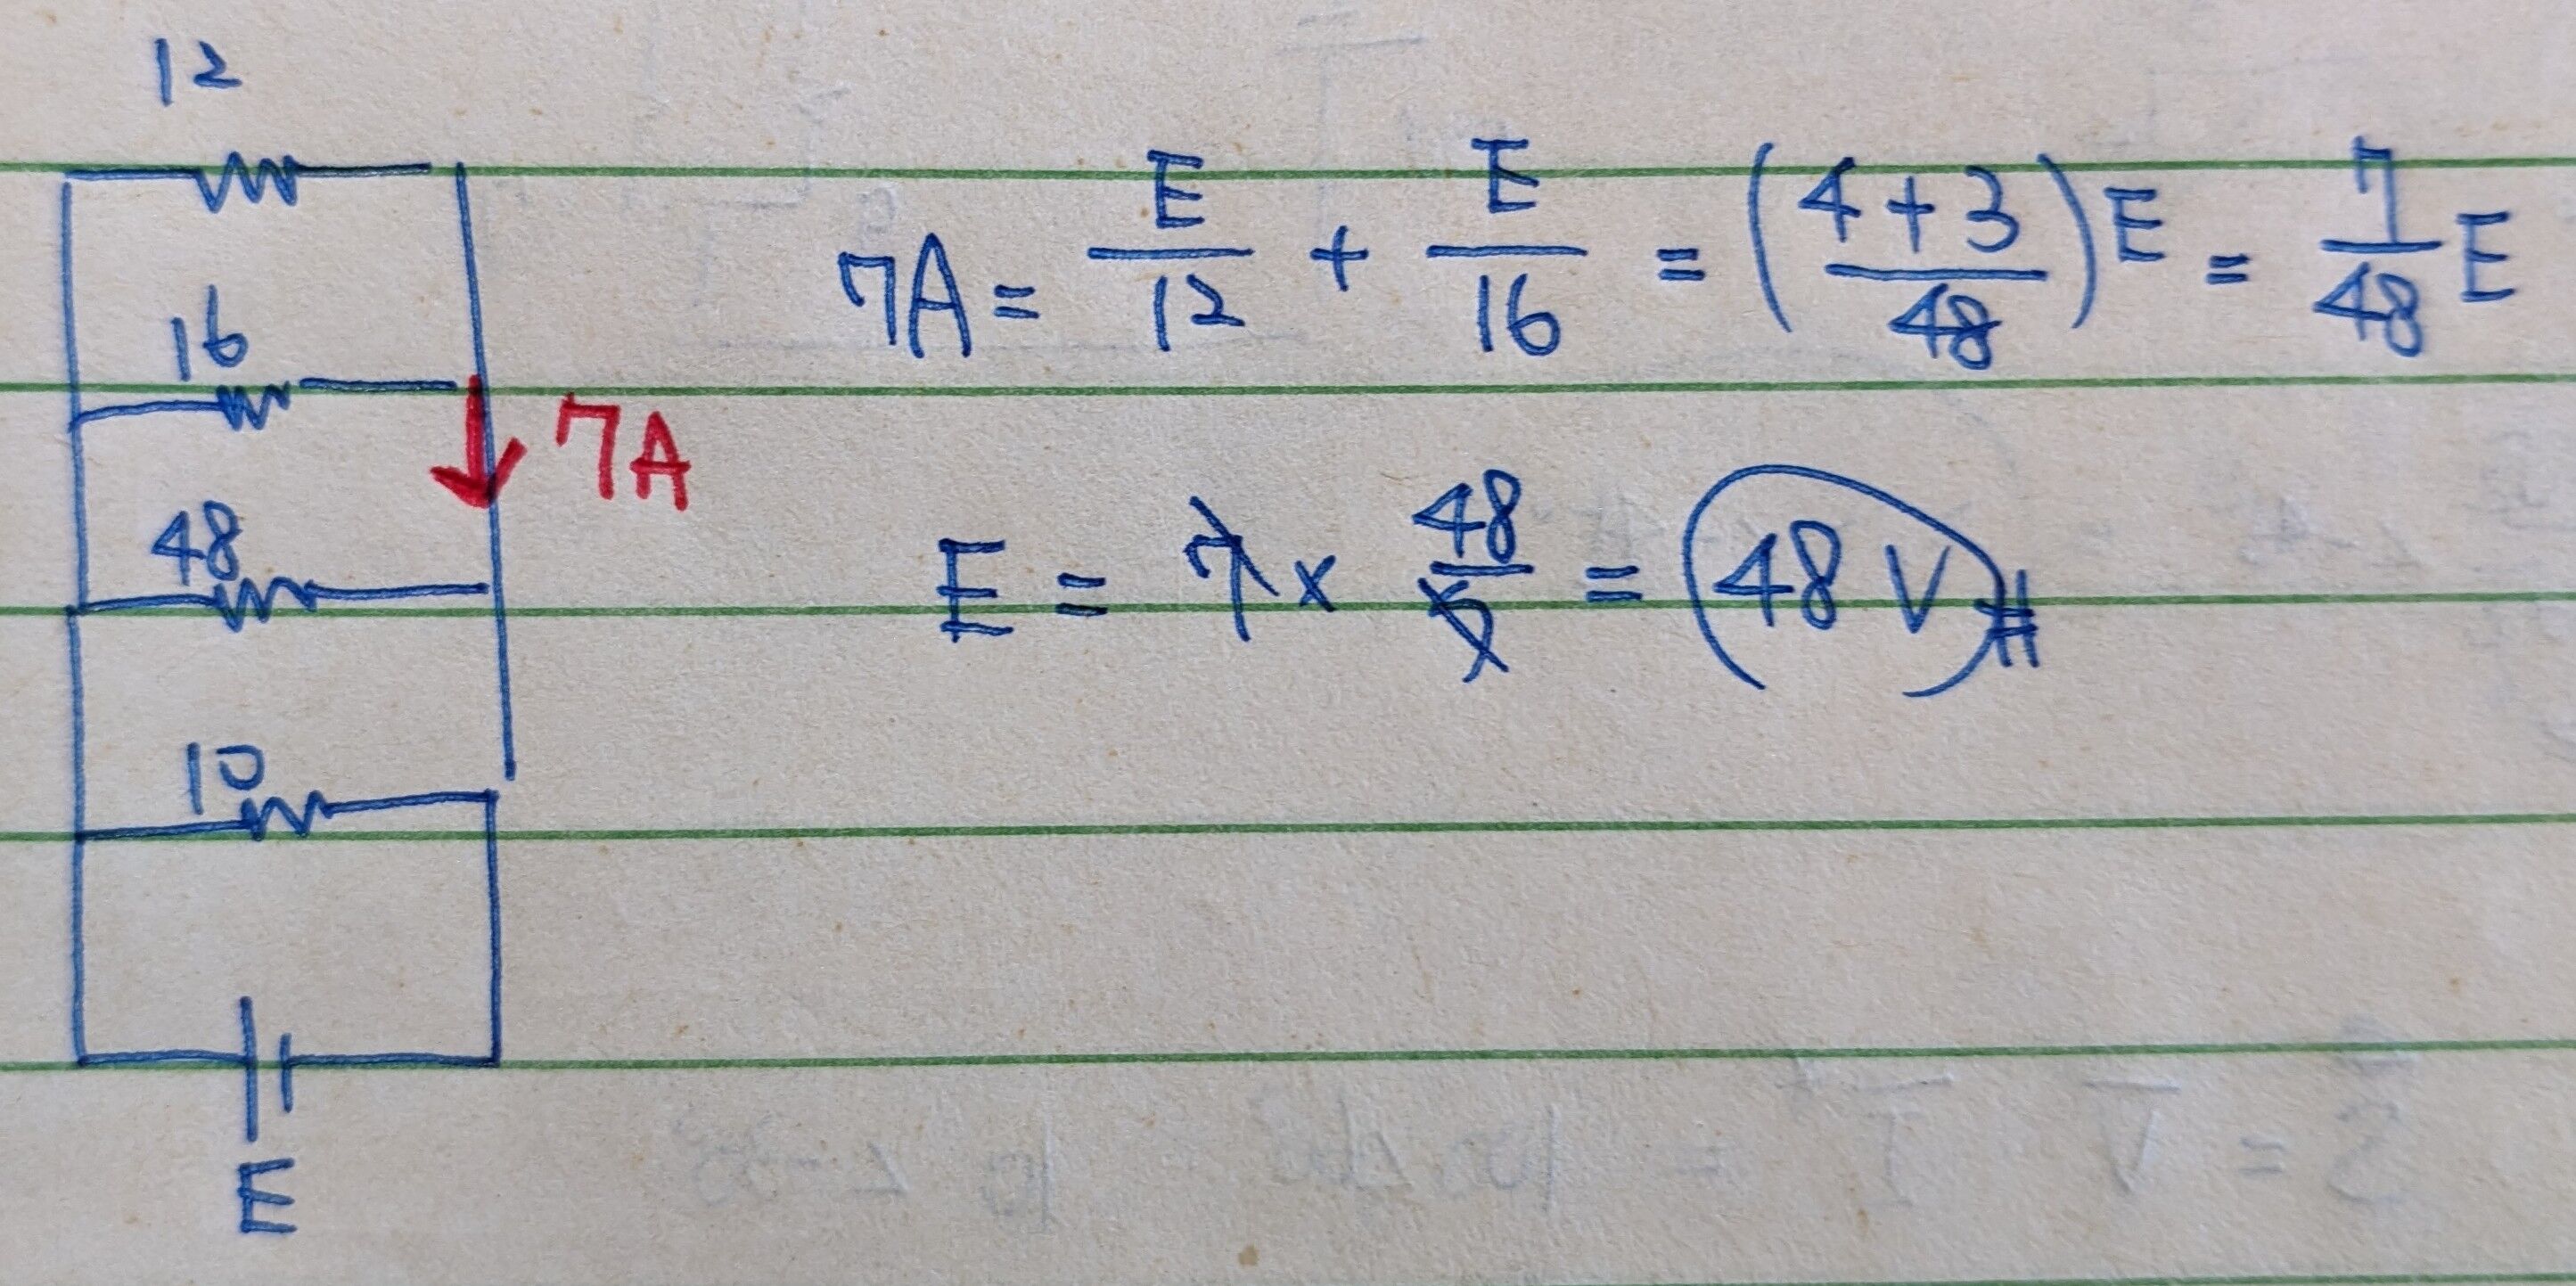 12
16
7A
48
10
E
7A = E/12 + E/16 = (4+3/48)E = 7/48 E
E = 7 × 48/7 = 48 V #